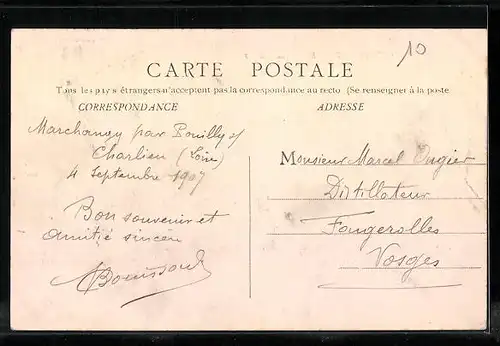 10
CARTE POSTALE
Tous les pays étrangers n'acceptent pas la correspondance au recto (Se renseigner à la poste
CORRESPONDANCE
ADRESSE
Marchangy par Pouilly s/
Charlieu (Loire)
4 Septembre 1907
Bon souvenir et
amitié sincère
Monsieur Marcel
Distillateur
Fougerolles
Vosges